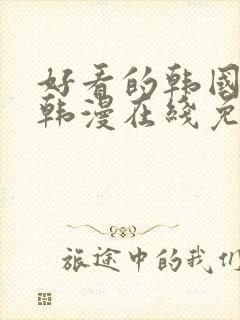 好看的韩国
韩漫在线免
旅途中的我们